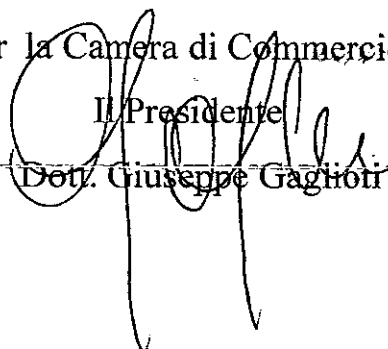 r la Camera di Commerci
Il Presidente
Dott. Giuseppe Gaglioti